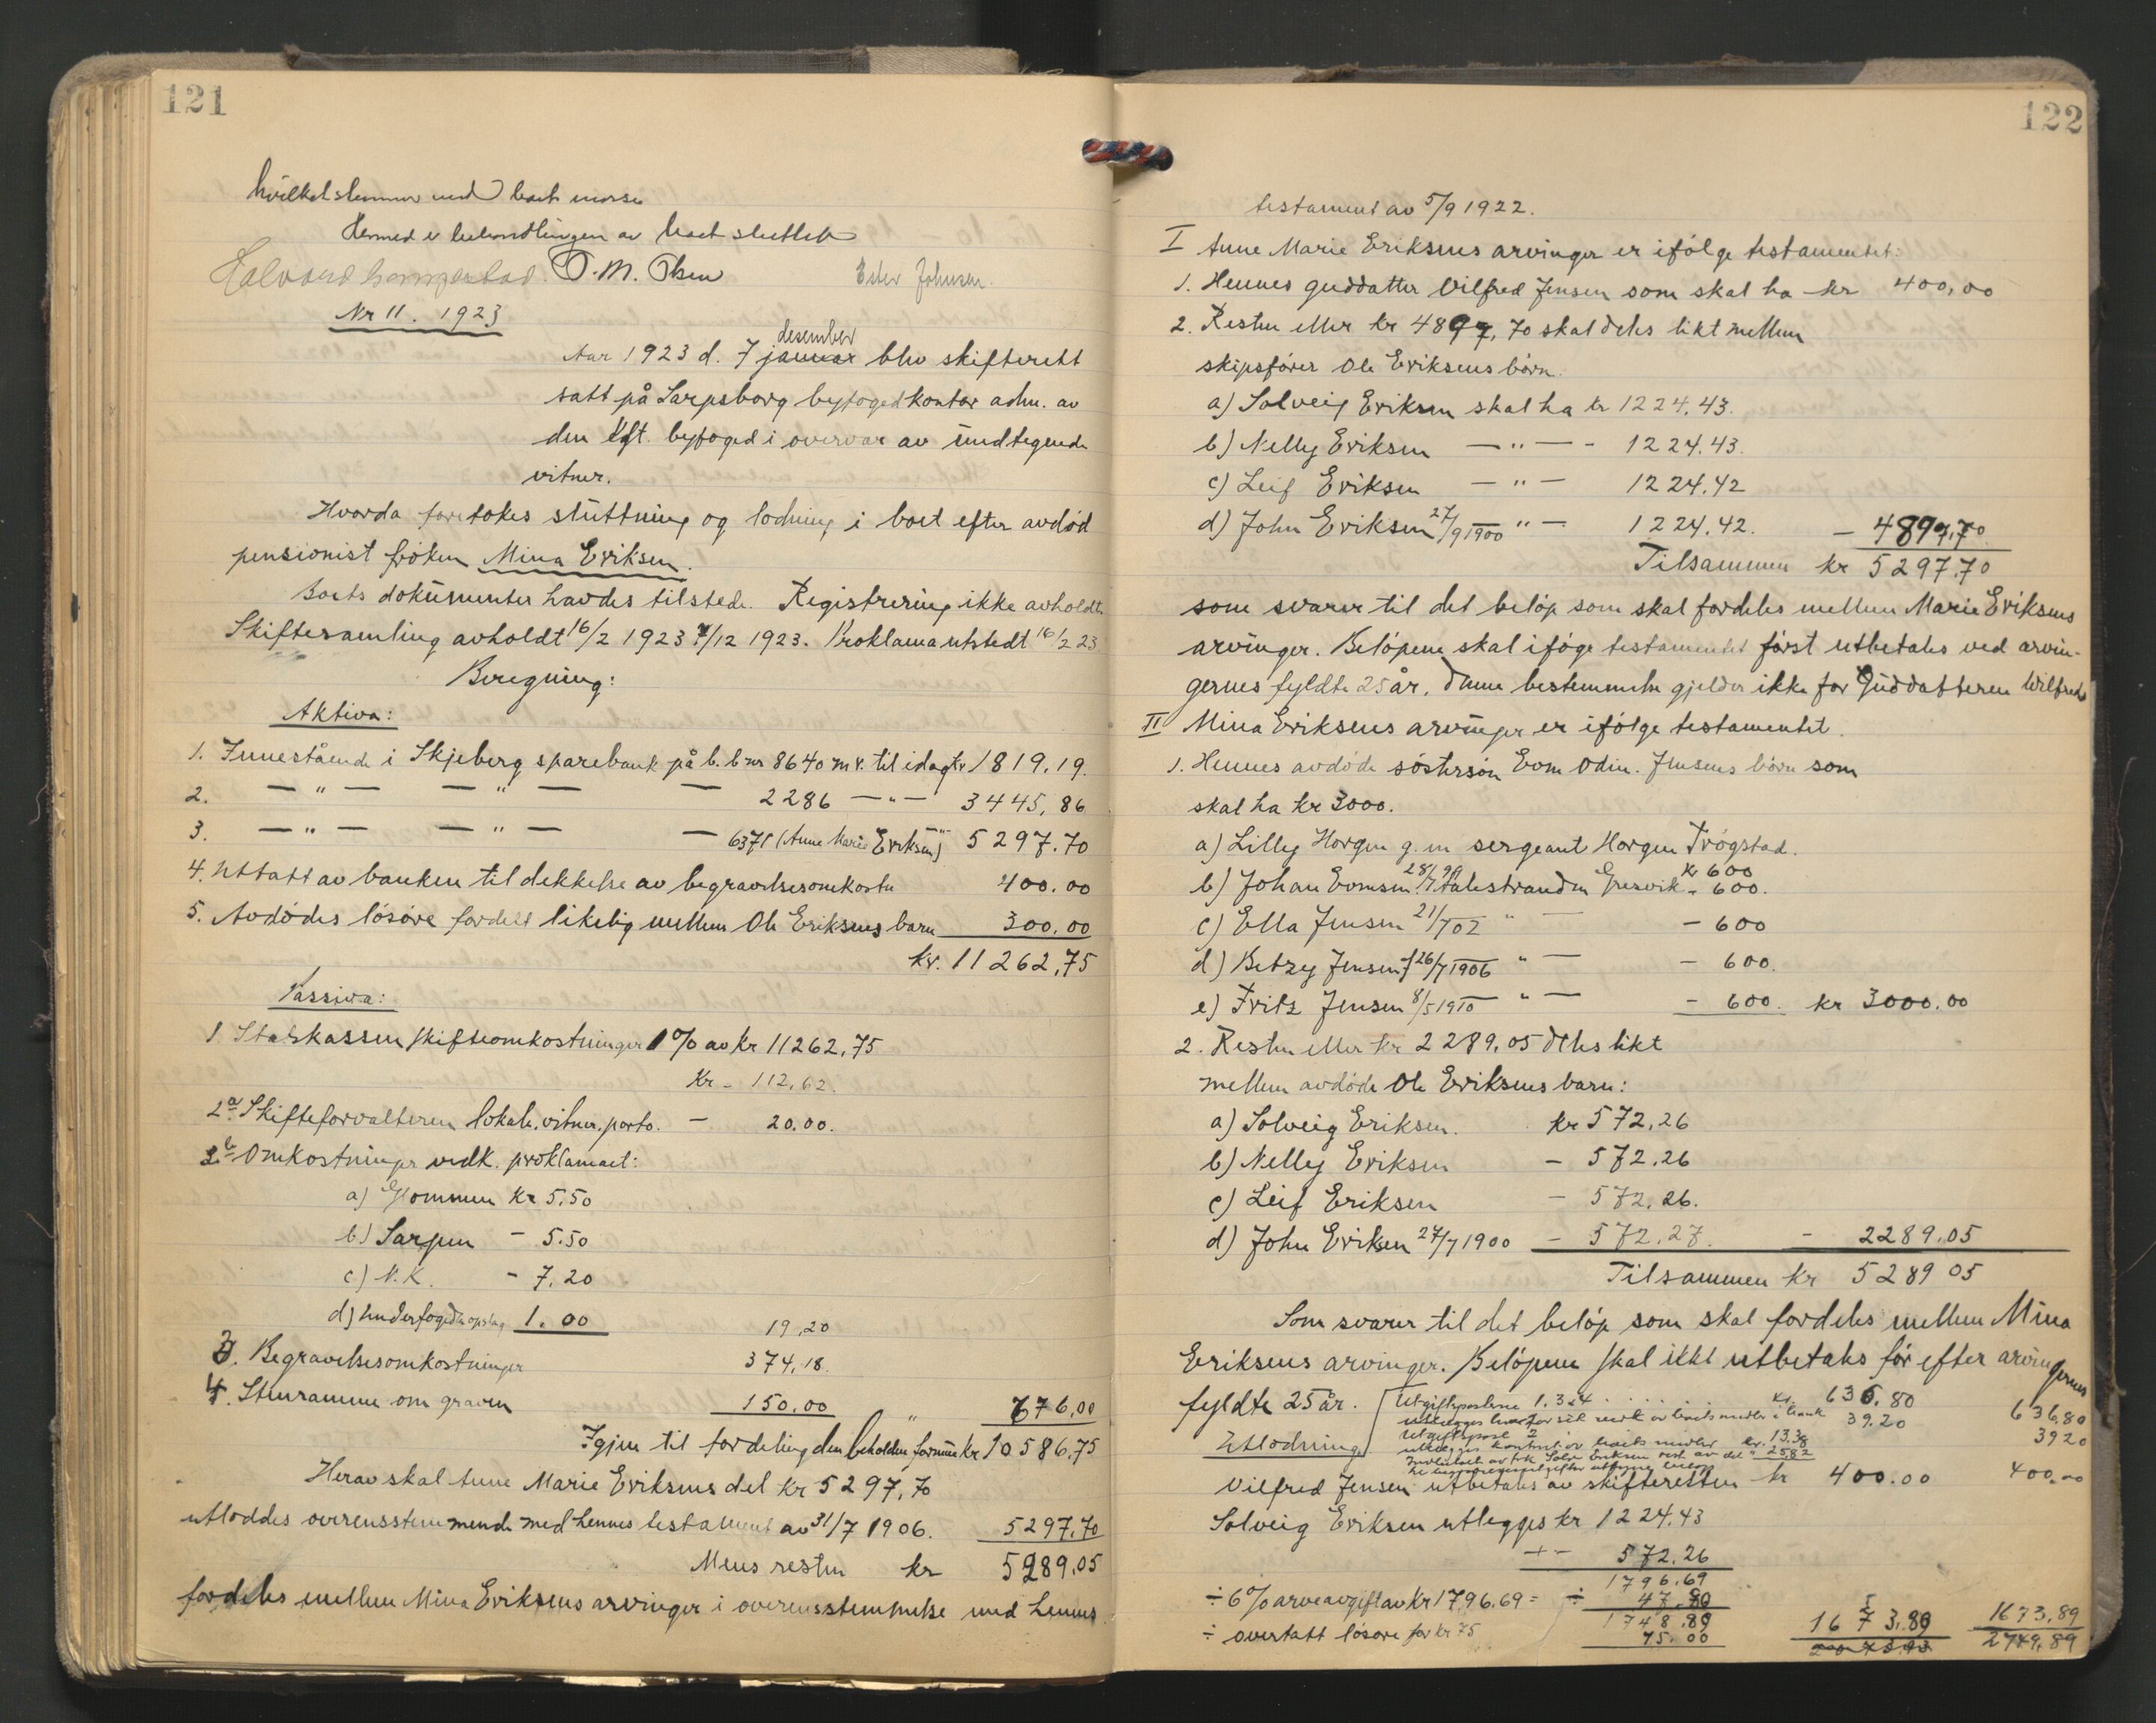 121
hvilket stemmer med boets masse
Hermed er behandlingen av boet sluttet
Halvard O. M. Olsen Ester Johnsen.
Nr 11. 1923
desember
Aar 1923 d. 7 januar blev skifterett
satt på Sarpsborg byfogedkontor adm. av
den kst. byfoged i overvær av undtegnede
vitner.
Hvorda foretokes sluttning og lodning i boet efter avdød
pensionist frøken Mina Eriksen.
Boets dokumenter havdes tilstede. Registrering ikke avholdt.
Skiftesamling avholdt 16/2 1923 7/12 1923. Proklama utstedt 16/2 23
Beregning:
Aktiva:
1. Innestående i Skjeberg sparebank på b. b nr 8640 m r. til idag kr 1819,19.
2. — " — — " — — 2286 — " — 3445,86
3. — " — — " — — 6371 (Anne Marie Eriksen) — " — 5297.70
4. Uttatt av banken til dekkelse av begravelsesomkostn 400.00
5. Avdødes løsøre fordelt likelig mellem Ole Eriksens barn 300.00
kr. 11262,75
Passiva:
1. Statskassen skifteomkostninger 1% av kr 11262,75
Kr - 112,62.
2a Skifteforvalteren lokale, vitner, porto. — 20.00.
2b Omkostninger vedk. proklamaet:
a) Glommen kr 5.50
b) Sarpen - 5.50
c) N. K. - 7.20
d) underfogden opslag 1.00 19,20
3. Begravelsesomkostninger 374,18.
4. Stenramme om graven 150.00 " 676,00
Igjen til fordeling den beholdne formue kr 10586,75
Herav skal Anne Marie Eriksens del kr 5297,70
utloddes overensstemmende med hennes testament av 31/7 1906. 5297.70
Mens resten kr 5289.05
fordeles mellem Mina Eriksens arvinger i overensstemmelse med hennes
122
testament av 5/9 1922.
I Anne Marie Eriksens arvinger er ifølge testamentet:
1. Hennes guddatter Vilfred Jensen som skal ha kr 400,00
2. Resten eller kr 4897,70 skal deles likt mellem
skipsfører Ole Eriksens børn.
a) Solveig Eriksen skal ha kr 1224,43.
b) Nelly Eriksen — " — - 1224.43.
c) Leif Eriksen — " — 1224,42
d) John Eriksen 27/9 1900 " — 1224,42. — 4897,70
Tilsammen kr 5297.70
som svarer til det beløp som skal fordeles mellem Marie Eriksens
arvinger. Beløpene skal iføge testamentet først utbetales ved arvin-
gernes fyldte 25 år, denne bestemmelse gjelder ikke for Guddatteren Wilfred
II Mina Eriksens arvinger er ifølge testamentet.
1. Hennes avdøde søstersøn Evom Odin. Jensens børn som
skal ha kr 3000.
a) Lilly Horgen g. m sergeant Horgen Trøgstad. kr 600
b) Johan Evomsen 28/7 99 Talestranden Gresvik - 600.
c) Ella Jensen 21/7 02 " — - 600
d) Betzy Jensen 26/7 1906 " — - 600.
e) Fritz Jensen 8/5 1910 " — - 600. kr 3000.00
2. Resten eller kr 2289,05 deles likt
mellem avdøde Ole Eriksens barn:
a) Solveig Eriksen. kr 572,26
b) Nelly Eriksen - 572,26
c) Leif Eriksen - 572,26.
d) John Eriksen 27/7 1900 - 572,27. - 2289.05
Tilsammen kr 5289 05
Som svarer til det beløp som skal fordeles mellem Mina
Eriksens arvinger. Beløpene skal ikke utbetales før efter arvingernes
fyldte 25 år. Utgiftsposterne 1. 3 & 4 . . . . kr. 636.80 636,80
utlegges av boets midler i bank 39.20 3920
Utlodning Utgiftspost 2
utlegges kontant av boets midler kr. 13.38
Solv. Eriksen av del " 25.82
Vilfred Jensen utbetales av skifteretten kr 400.00 400,00
Solveig Eriksen utlegges kr 1224.43
+ - 572.26
1796,69
÷ 6% arveavgift av kr 1796.69 = ÷ 47.80
1748.89
÷ overtatt løsøre for kr 75 75.00 1673,89 1673,89
2749,89